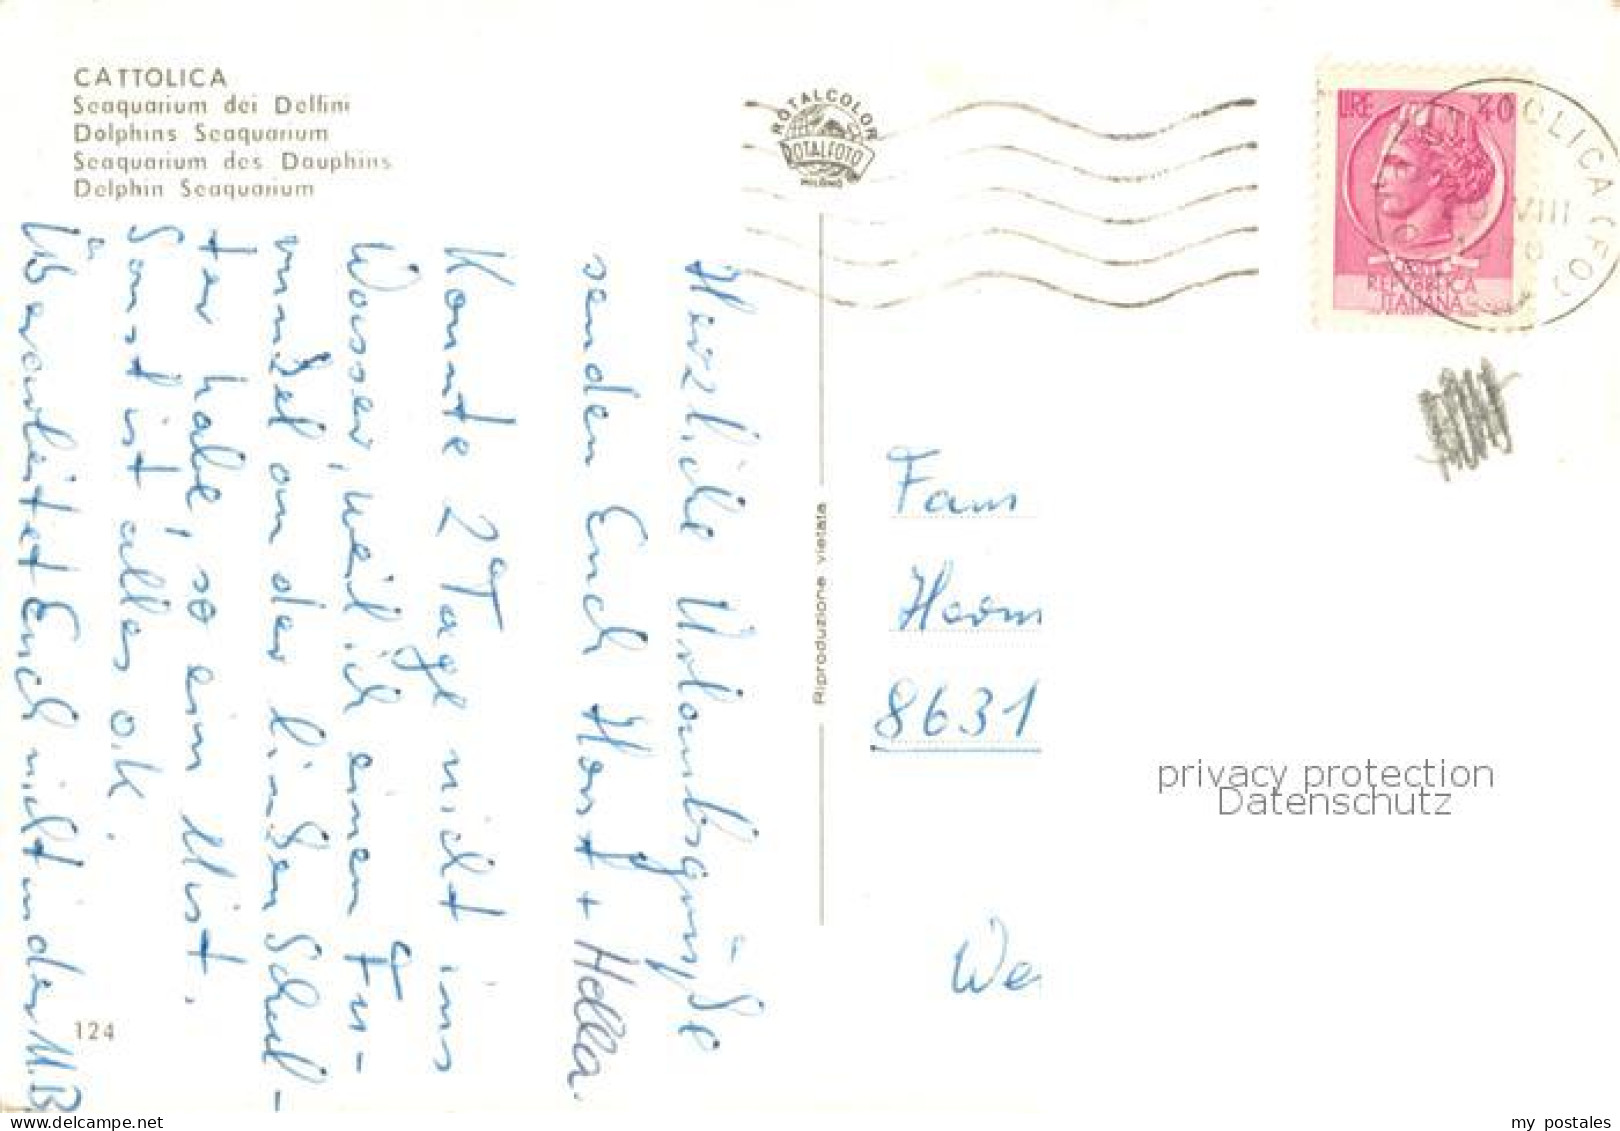 CATTOLICA
Seaquarium dei Delfini
Dolphins Seaquarium
Seaquarium des Dauphins
Delphin Seaquarium
ROTALCOLOR
ROTALFOTO
MILANO
LIRE 40
REPUBBLICA
ITALIANA
CATTOLICA (FO)
VIII
Herzliche Urlaubsgrüße
senden Euch Horst + Hella.
Konnte 2 Tage nicht ins
Wasser, weil ich einen Fu-
runkel an der linken Schul-
ter habe, so ein Mist.
Sonst ist alles o.k.
Überarbeitet Euch nicht in der M.B.
Riproduzione vietata
Fam
Herm
8631
We
124
privacy protection
Datenschutz
my postales
www.delcampe.net